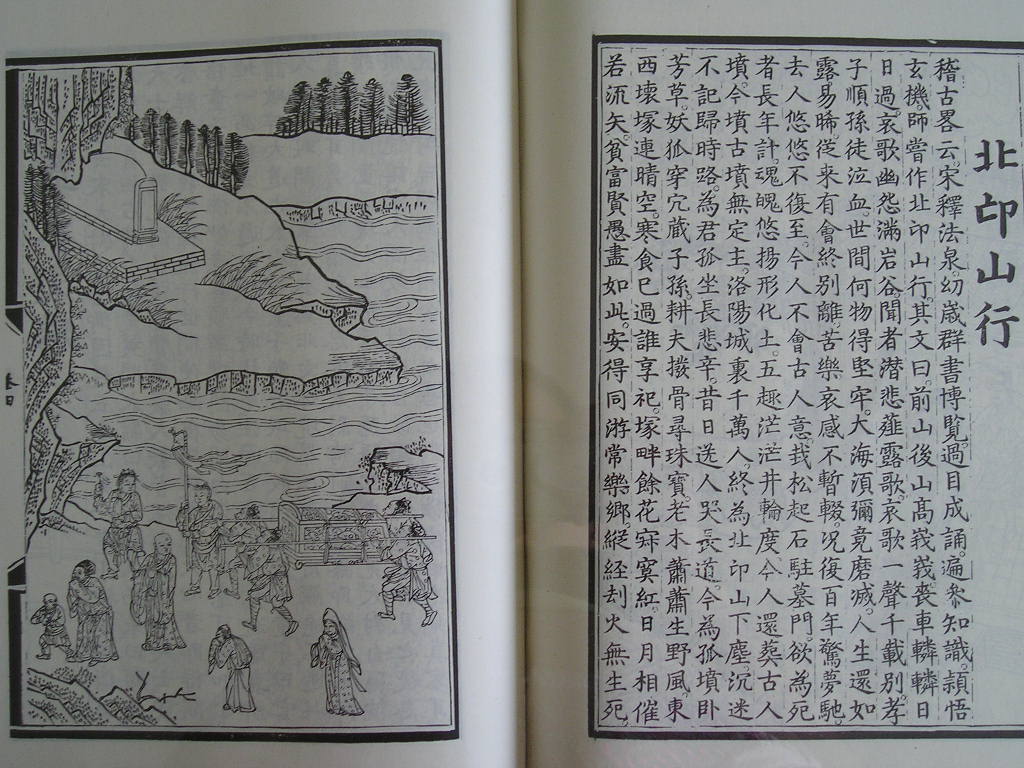 北邙山行
稽古畧云。宋釋法泉。幼歳群書博覽。過目成誦。遍叅知識。頴悟
玄機。師嘗作北邙山行。其文曰。前山後山髙峩峩。喪車轔轔日
日過。哀歌幽怨滿岩谷。聞者潜悲薤露歌。哀歌一聲千載别。孝
子順孫徒泣血。世間何物得堅牢。大海湏彌竟磨滅。人生還如
露易晞。從来有會終别離。苦樂哀感不暫輟。况復百年驚夢馳
去人悠悠不復至。今人不會古人意。栽松起石駐墓門。欲為死
者長年計。魂魄悠揚形化土。五趣茫茫井輪度。今人還葬古人
墳。今墳古墳無定主。洛陽城裏千萬人。終為北邙山下塵。沉迷
不記歸時路。為君孤坐長悲辛。昔日送人哭長道。今為孤墳卧
芳草。妖狐穿穴蔵子孫。耕夫撥骨尋珠寳。老木蕭蕭生野風。東
西壞塚連晴空。寒食已過誰享祀。塚畔餘花寂寞紅。日月相催
若流矢。貧富賢愚盡如此。安得同游常樂鄉。縦経刼火無生死。